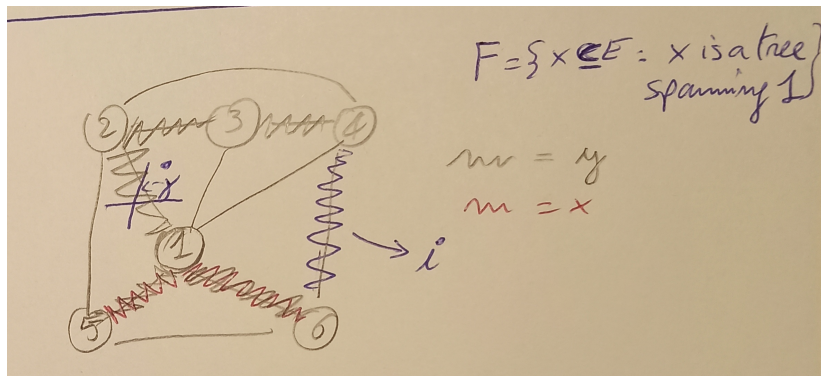 F = { x ⊆ E : x is a tree
spanning 1 }
2 3 4
= y
j
= x
1
i
5 6